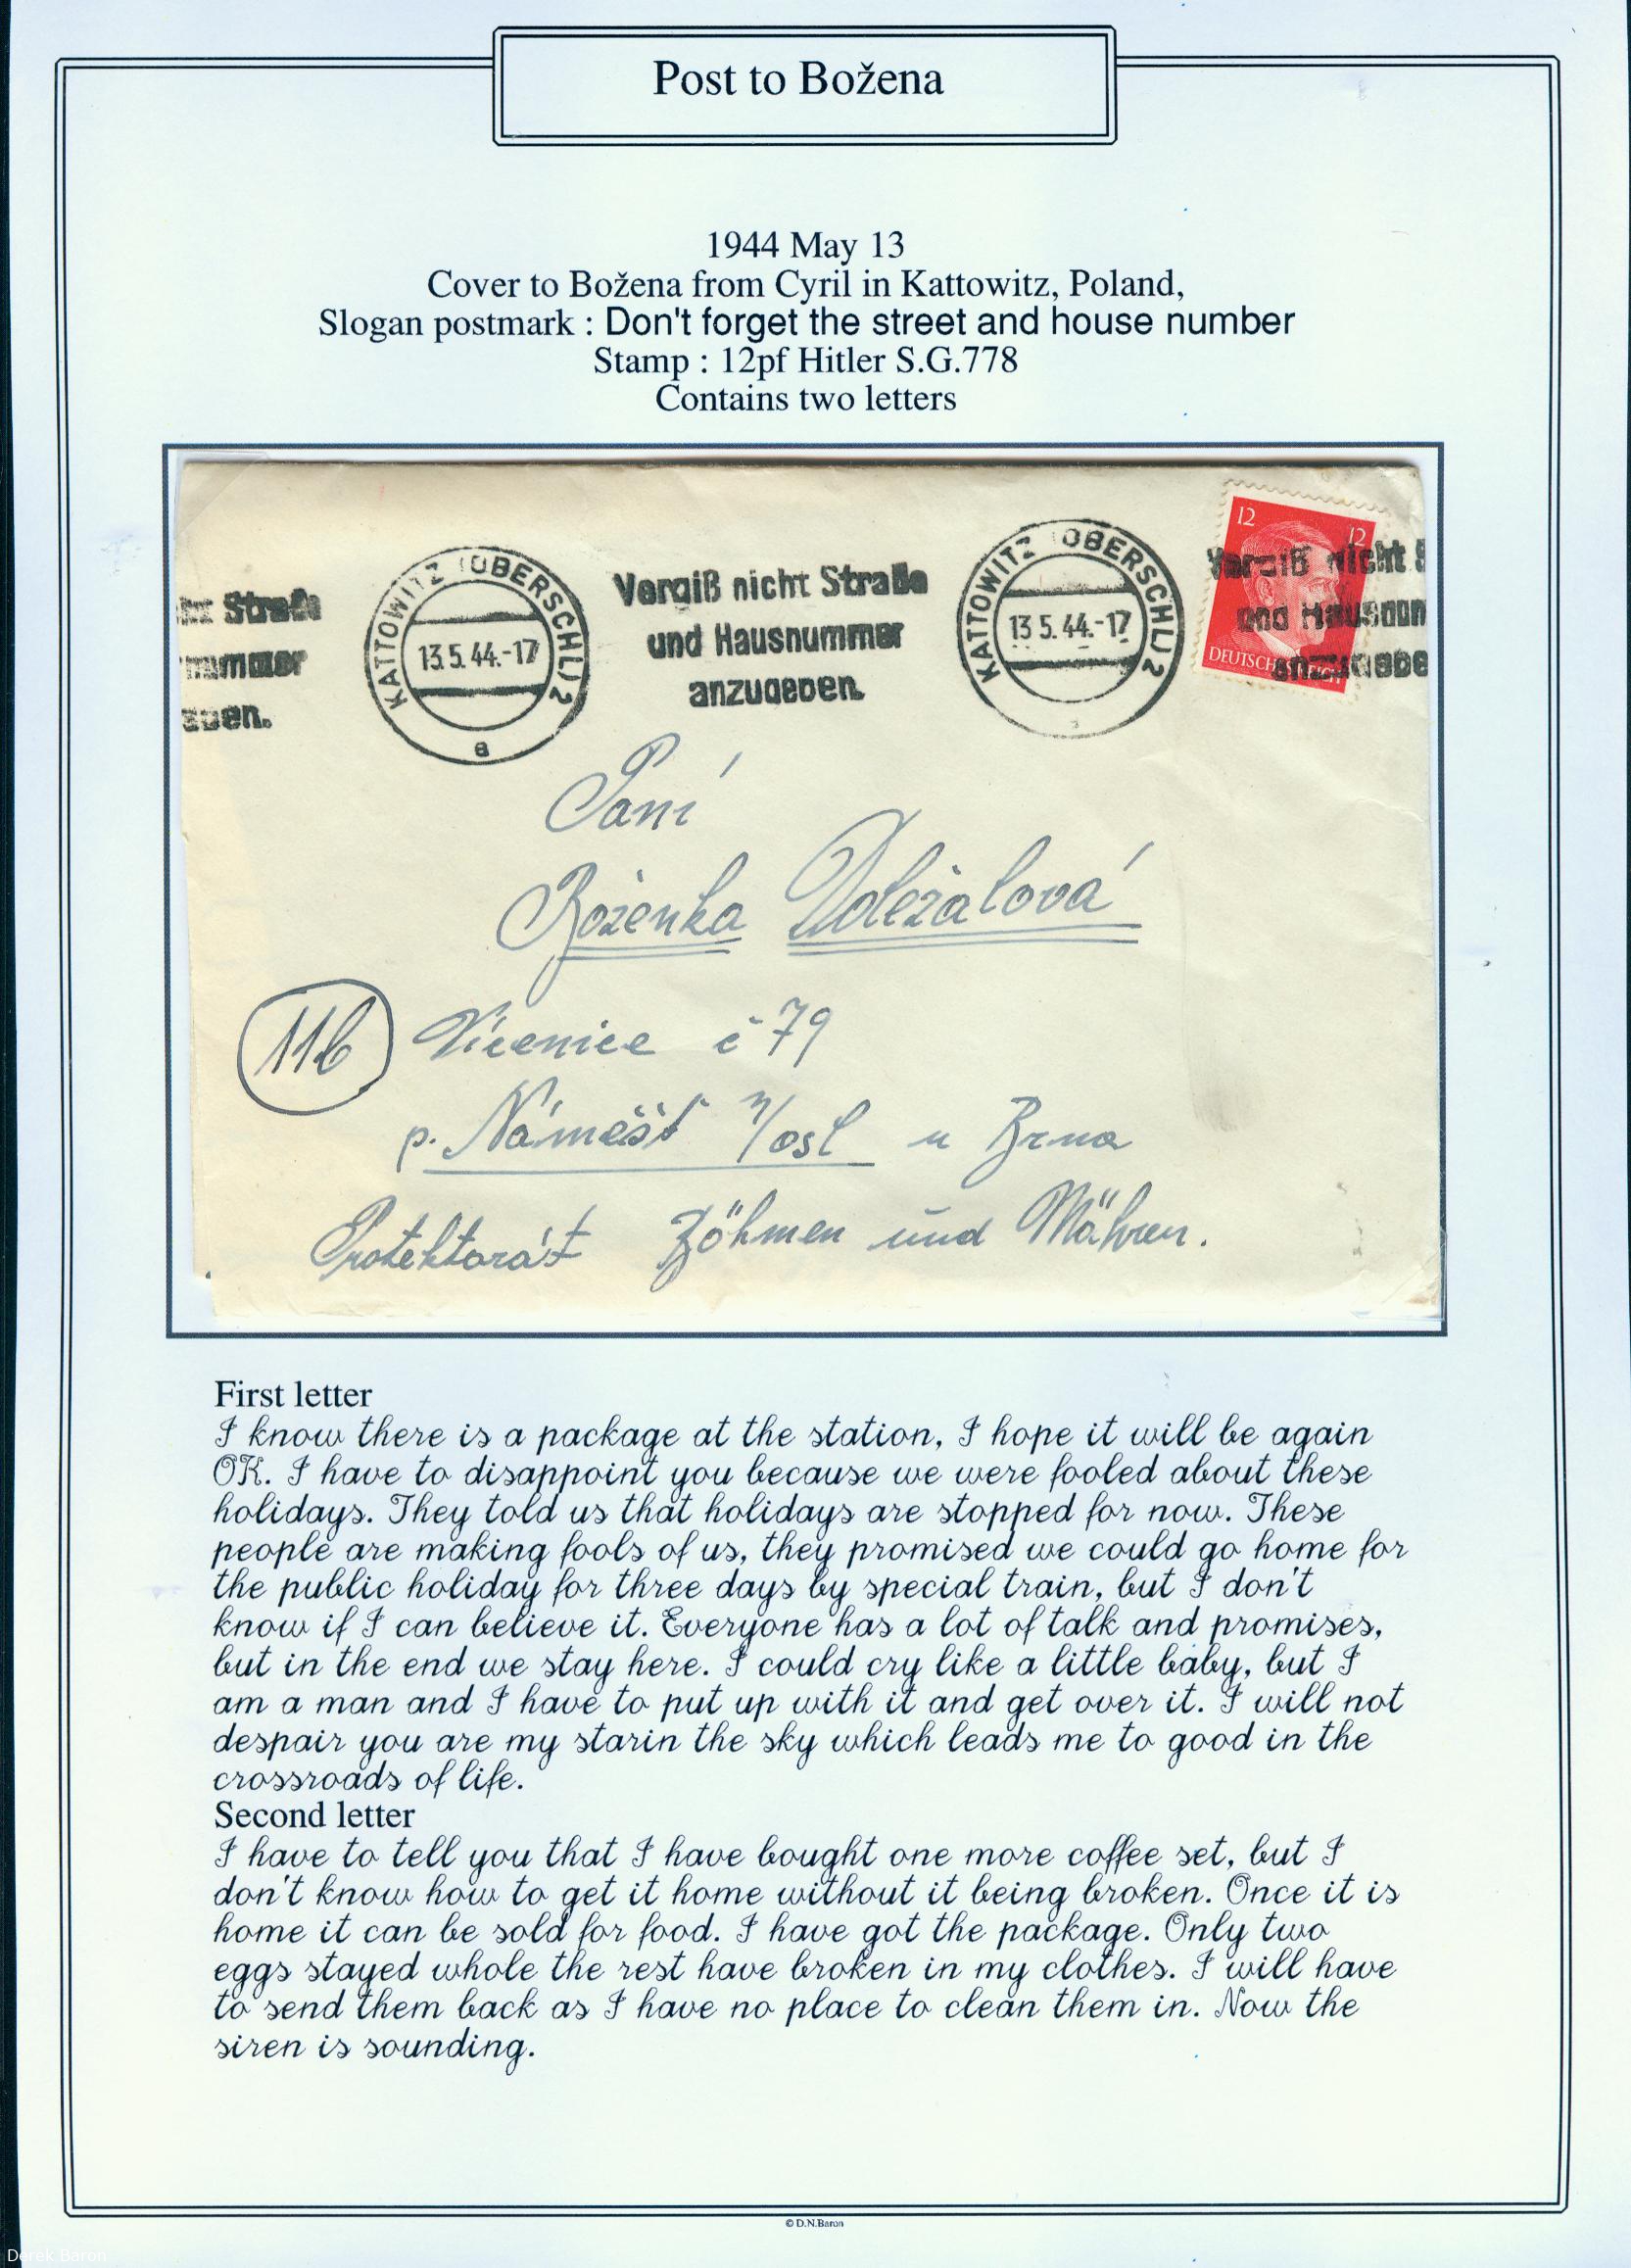 Post to Božena
1944 May 13
Cover to Božena from Cyril in Kattowitz, Poland,
Slogan postmark : Don't forget the street and house number
Stamp : 12pf Hitler S.G.778
Contains two letters
KATTOWITZ (OBERSCHL) 2
13.5.44.-17
a
Vergiß nicht Straße
und Hausnummer
anzugeben.
KATTOWITZ (OBERSCHL) 2
13.5.44.-17
12 12
DEUTSCHES REICH
Vergiß nicht
und
Straße
Paní
Boženka Doležalová
11b Vícenice č 79
p. Náměšť n/osl u Brna
Protektorát Böhmen und Mähren.
First letter
I know there is a package at the station, I hope it will be again
OK. I have to disappoint you because we were fooled about these
holidays. They told us that holidays are stopped for now. These
people are making fools of us, they promised we could go home for
the public holiday for three days by special train, but I don't
know if I can believe it. Everyone has a lot of talk and promises,
but in the end we stay here. I could cry like a little baby, but I
am a man and I have to put up with it and get over it. I will not
despair you are my starin the sky which leads me to good in the
crossroads of life.
Second letter
I have to tell you that I have bought one more coffee set, but I
don't know how to get it home without it being broken. Once it is
home it can be sold for food. I have got the package. Only two
eggs stayed whole the rest have broken in my clothes. I will have
to send them back as I have no place to clean them in. Now the
siren is sounding.
© D.N.Baron
Derek Baron